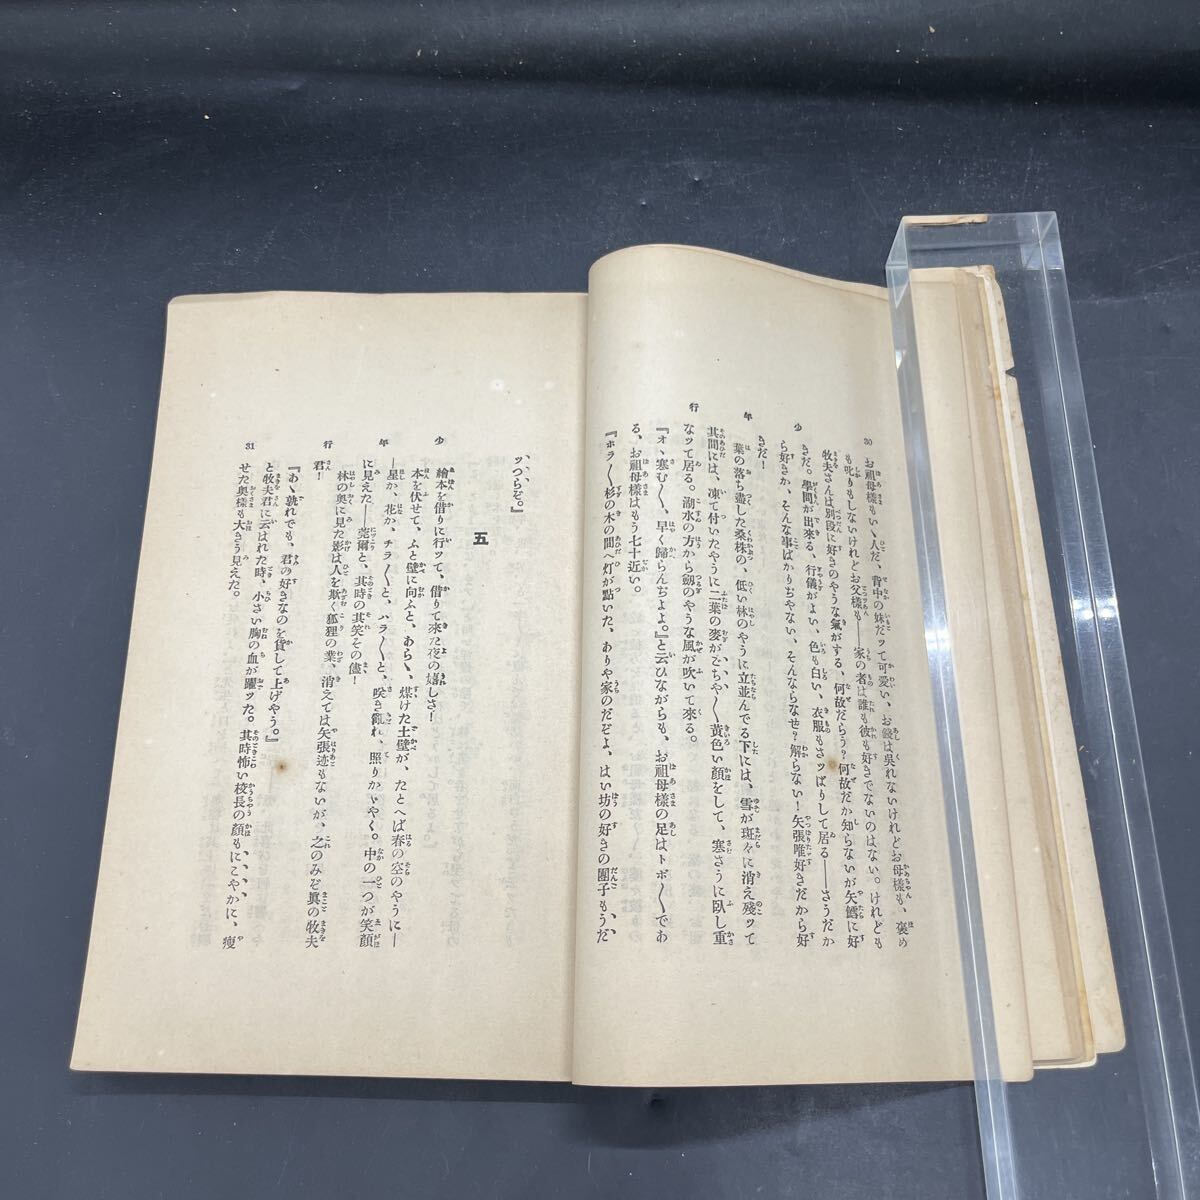 30
少年行
お祖母様もいゝ人だ、背中の妹だッて可愛い、お錢は呉れないけれどお母様も、褒め
も叱りもしないけれどお父様も――家の者は誰も彼も好きでないのはない。けれども
牧夫さんは別段に好きのやうな氣がする、何故だらう？何故だか知らないが矢鱈に好
きだ。學問が出來る、行儀がよい、色も白い、衣服もさッぱりして居る――さうだか
ら好きか、そんな事ばかりぢやない、そんならなぜ？解らない！矢張唯好きだから好
きだ！
葉の落ち盡した桑株の、低い林のやうに立並んでる下には、雪が斑々に消え殘ッて
其間には、凍て付いたやうに二葉の麥がごちや〳〵黃色い顏をして、寒さうに臥し重
なッて居る。湖水の方から劒のやうな風が吹いて來る。
『オヽ寒む〳〵、早く歸らんぢよ。』と云ひながらも、お祖母様の足はトボ〳〵であ
る、お祖母様はもう七十近い。
『ホラ〳〵杉の木の間へ灯が點いた、ありや家のだぞよ、はい坊の好きの團子もうだ
ッつらぞ。』
五
繪本を借りに行ッて、借りて來た夜の嬉しさ！
本を伏せて、ふと壁に向ふと、あらゝ、煤けた土壁が、たとへば春の空のやうに―
―星か、花か、チラ〳〵と、ハラ〳〵と、咲き亂れ、照りかゞやく。中の一つが笑顏
に見えた――莞爾と、其時の其笑その儘！
林の奥に見た影は人を欺く狐狸の業、消えては矢張迹もないが、之のみぞ眞の牧夫
君！
『あゝ孰れでも、君の好きなのを貸して上げやう。』
と牧夫君に云はれた時、小さい胸の血が躍ッた。其時怖い校長の顏もにこやかに、瘦
せた奥様も大きう見えた。
少年行
31